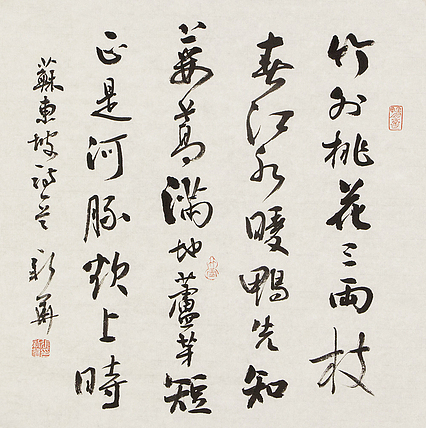 竹外桃花三兩枝
春江水暖鴨先知
蔞蒿滿地蘆芽短
正是河豚欲上時
蘇東坡詩